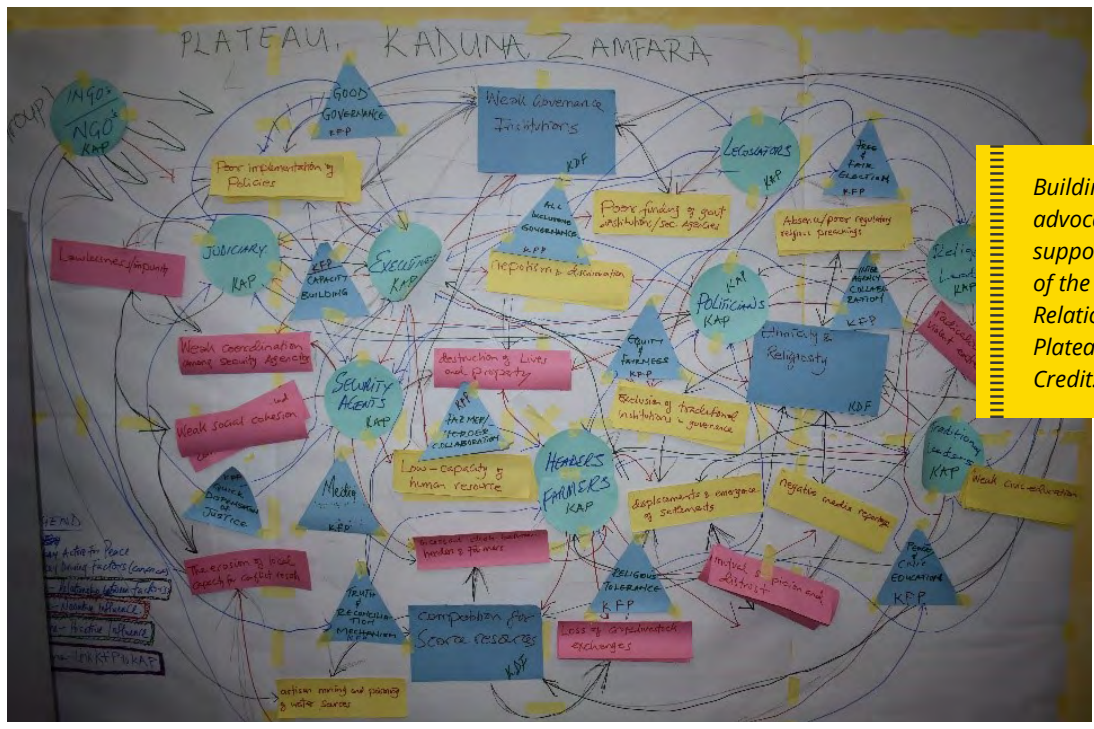 PLATEAU, KADUNA, ZAMFARA
INGO's
NGO's
KAP
GOOD
GOVERNANCE
KFP
Weak Governance
Institutions
KDF
LEGISLATORS
KAP
FREE
& FAIR
KFP
Poor implementation of
Policies
ALL
INCLUSIVE
GOVERNANCE
KFP
Poor funding of
institution/sec Agencies
Absence/poor regulating
religious preachings
Lawlessness/impunity
JUDICIARY
KAP
KFP
CAPACITY
BUILDING
EXECUTIVES
KAP
Nepotism &
KAP
POLITICIANS
KAP
INTER
AGENCY
COLLABO
RATION
KFP
KAP
Weak Coordination
among security Agencies
destruction of Lives
and property
EQUITY
&
FAIRNESS
KFP
Ethnicity &
Religiosity
KDF
Weak social cohesion
SECURITY
AGENTS
KAP
KFP
FARMER/
HERDER
COLLABORATION
Exclusion of traditional
institutions governance
KAP
QUICK
DISPENSATION
OF
JUSTICE
Media
KFP
Low-capacity of
human resource
HEADERS
FARMERS
KAP
displacements & emergence
of settlements
negative media reporting
Weak civic education
The erosion of local
capacity for conflict
herders & farmers
RELIGIOUS
TOLERANCE
KFP
mutual suspicion and
distrust
PEACE
&
CIVIC
EDUCATION
KFP
TRUTH
&
RECONCILIA
TION
MECHANISM
KFP
Competition for
Scarce resources
KDF
Loss of
exchanges
artisan mining and
of water sources
Buildin
advoca
suppo
of the
Relatio
Platea
Credit